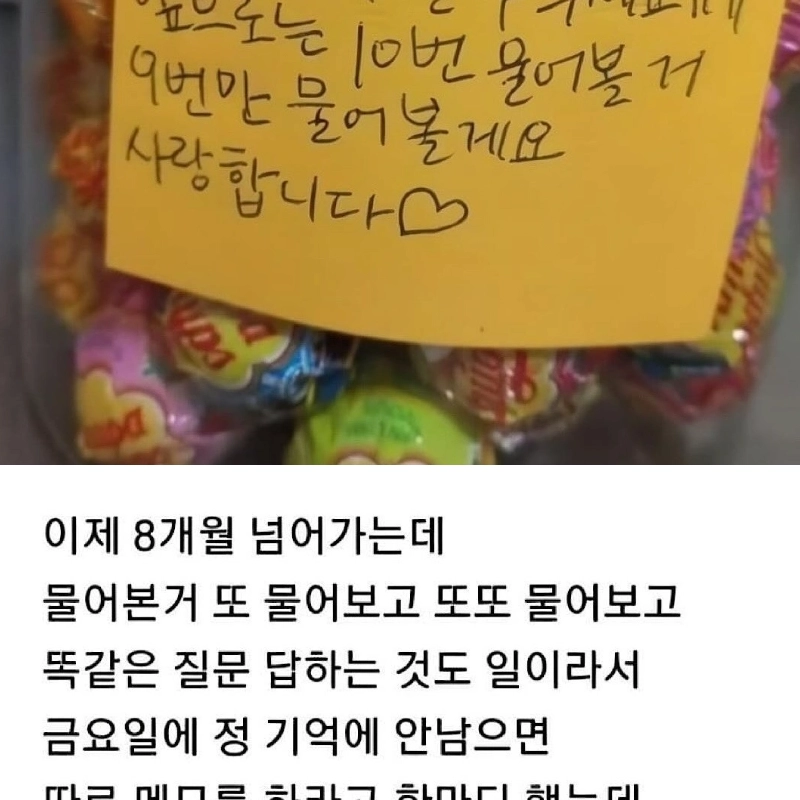 앞으로는 10번 물어볼 거
9번만 물어볼게요
사랑합니다♡
이제 8개월 넘어가는데
물어본거 또 물어보고 또또 물어보고
똑같은 질문 답하는 것도 일이라서
금요일에 정 기억에 안남으면
따로 메모를 하라고 한마디 했는데